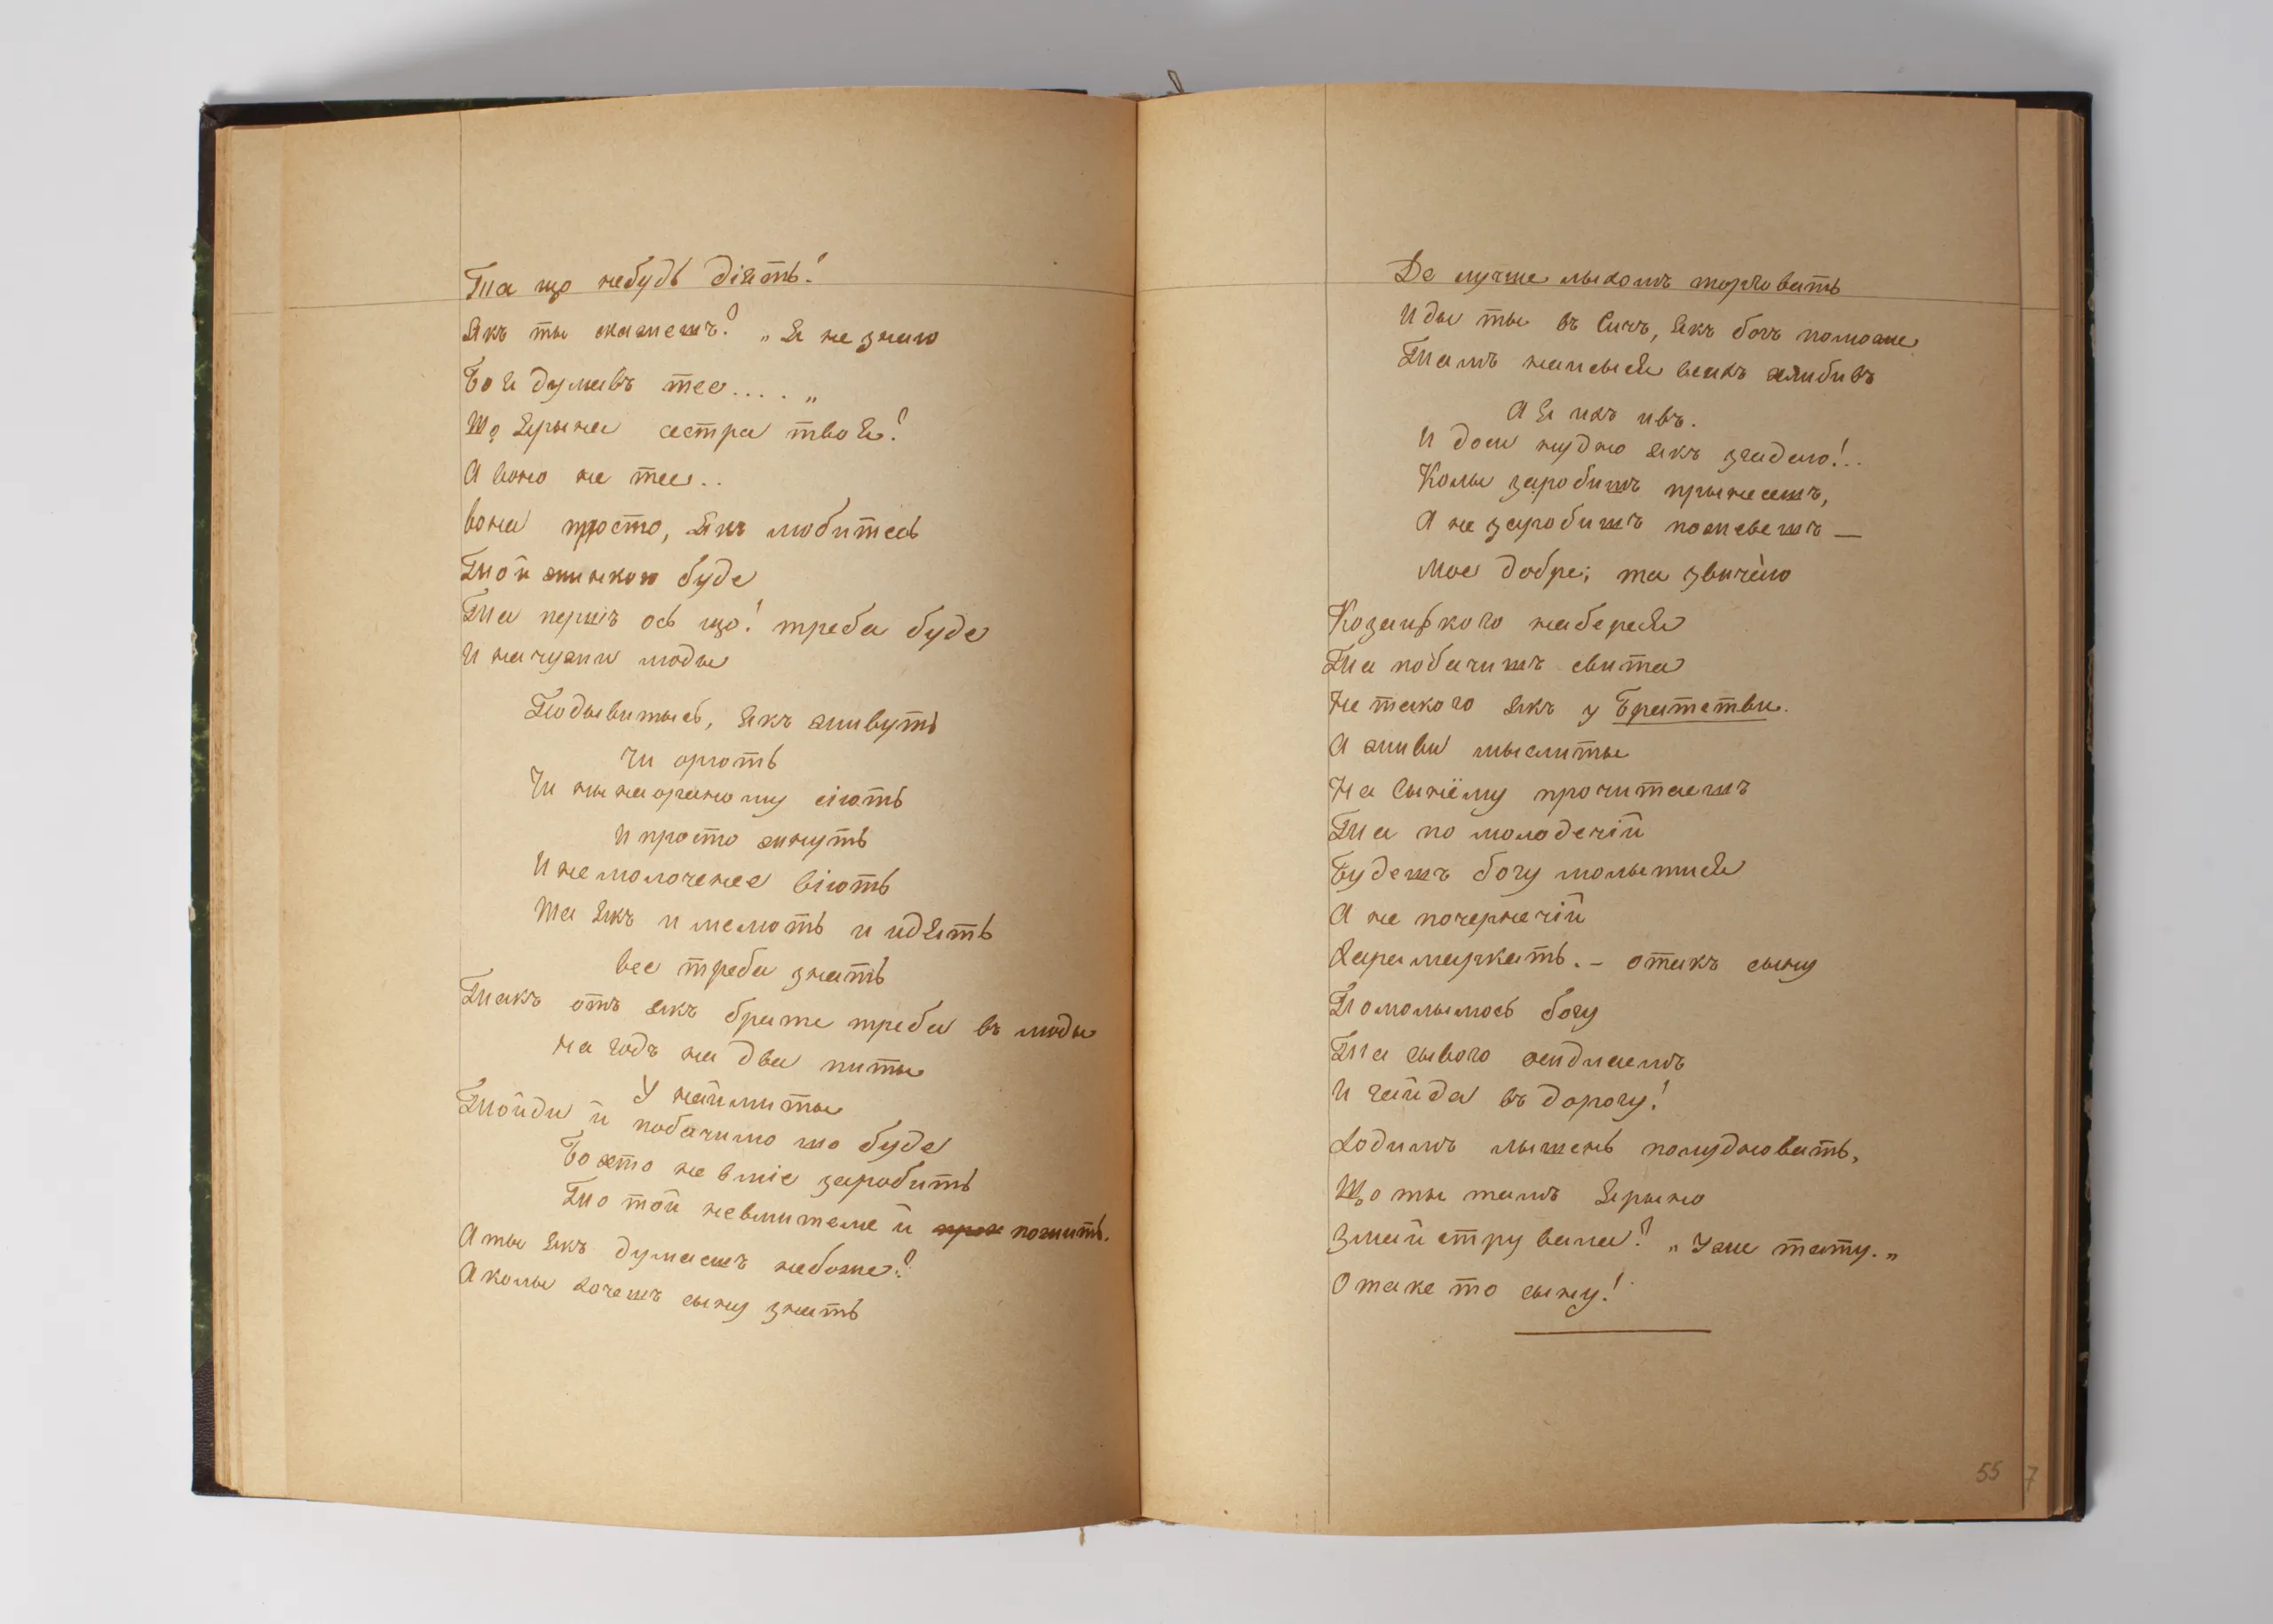 Та що небудь діять!
Якъ ты скажешъ? „Я не знаю
Бо я думавъ тее.... „
Що Ярына сестра твоя?
А воно не тее..
вона просто, якъ любитесь
Той жинкою буде
Та першъ ось що! треба буде
И на чужи люды
Подывитысь, якъ живуть
Чи орють
Чи ны на ораному сіють
И просто жнуть
И не молоченее віють
Та якъ и мелють и идять
все треба знать
Такъ отъ якъ брате треба въ люды
на годъ на два питы
У наймиты
Тойди й побачимо що буде
Бо хто не вміе заробить
То той невмитеме й пожить.
А ты якъ думаешъ небоже?
А колы хочешъ сыну знать
Де лучше лыхомъ торговать
Иды ты въ Сичъ, якъ богъ поможе
Тамъ наисыся всихъ хлибивъ
А я ихъ ивъ.
И доси нудно якъ згадаю!..
Колы заробишъ прынесешъ,
А не заробишъ поживешъ —
Мое добре; та звычаю
Козацького наберея
Та побачишъ свита
Не такого якъ у Братстви.
А живи мыслиты
На Сыніёму прочитаешъ
Та по молодечій
Будешъ богу молытися
А не по чернечій
Харамаркать. – отакъ сыну
Помолымось богу
Та сывого осидлаемъ
И гайда въ дорогу!
Ходимъ лышень полудновать,
Що ты тамъ Ярыно
Змайструвала? „Уже тату.„
Отаке то сыну!
55
7